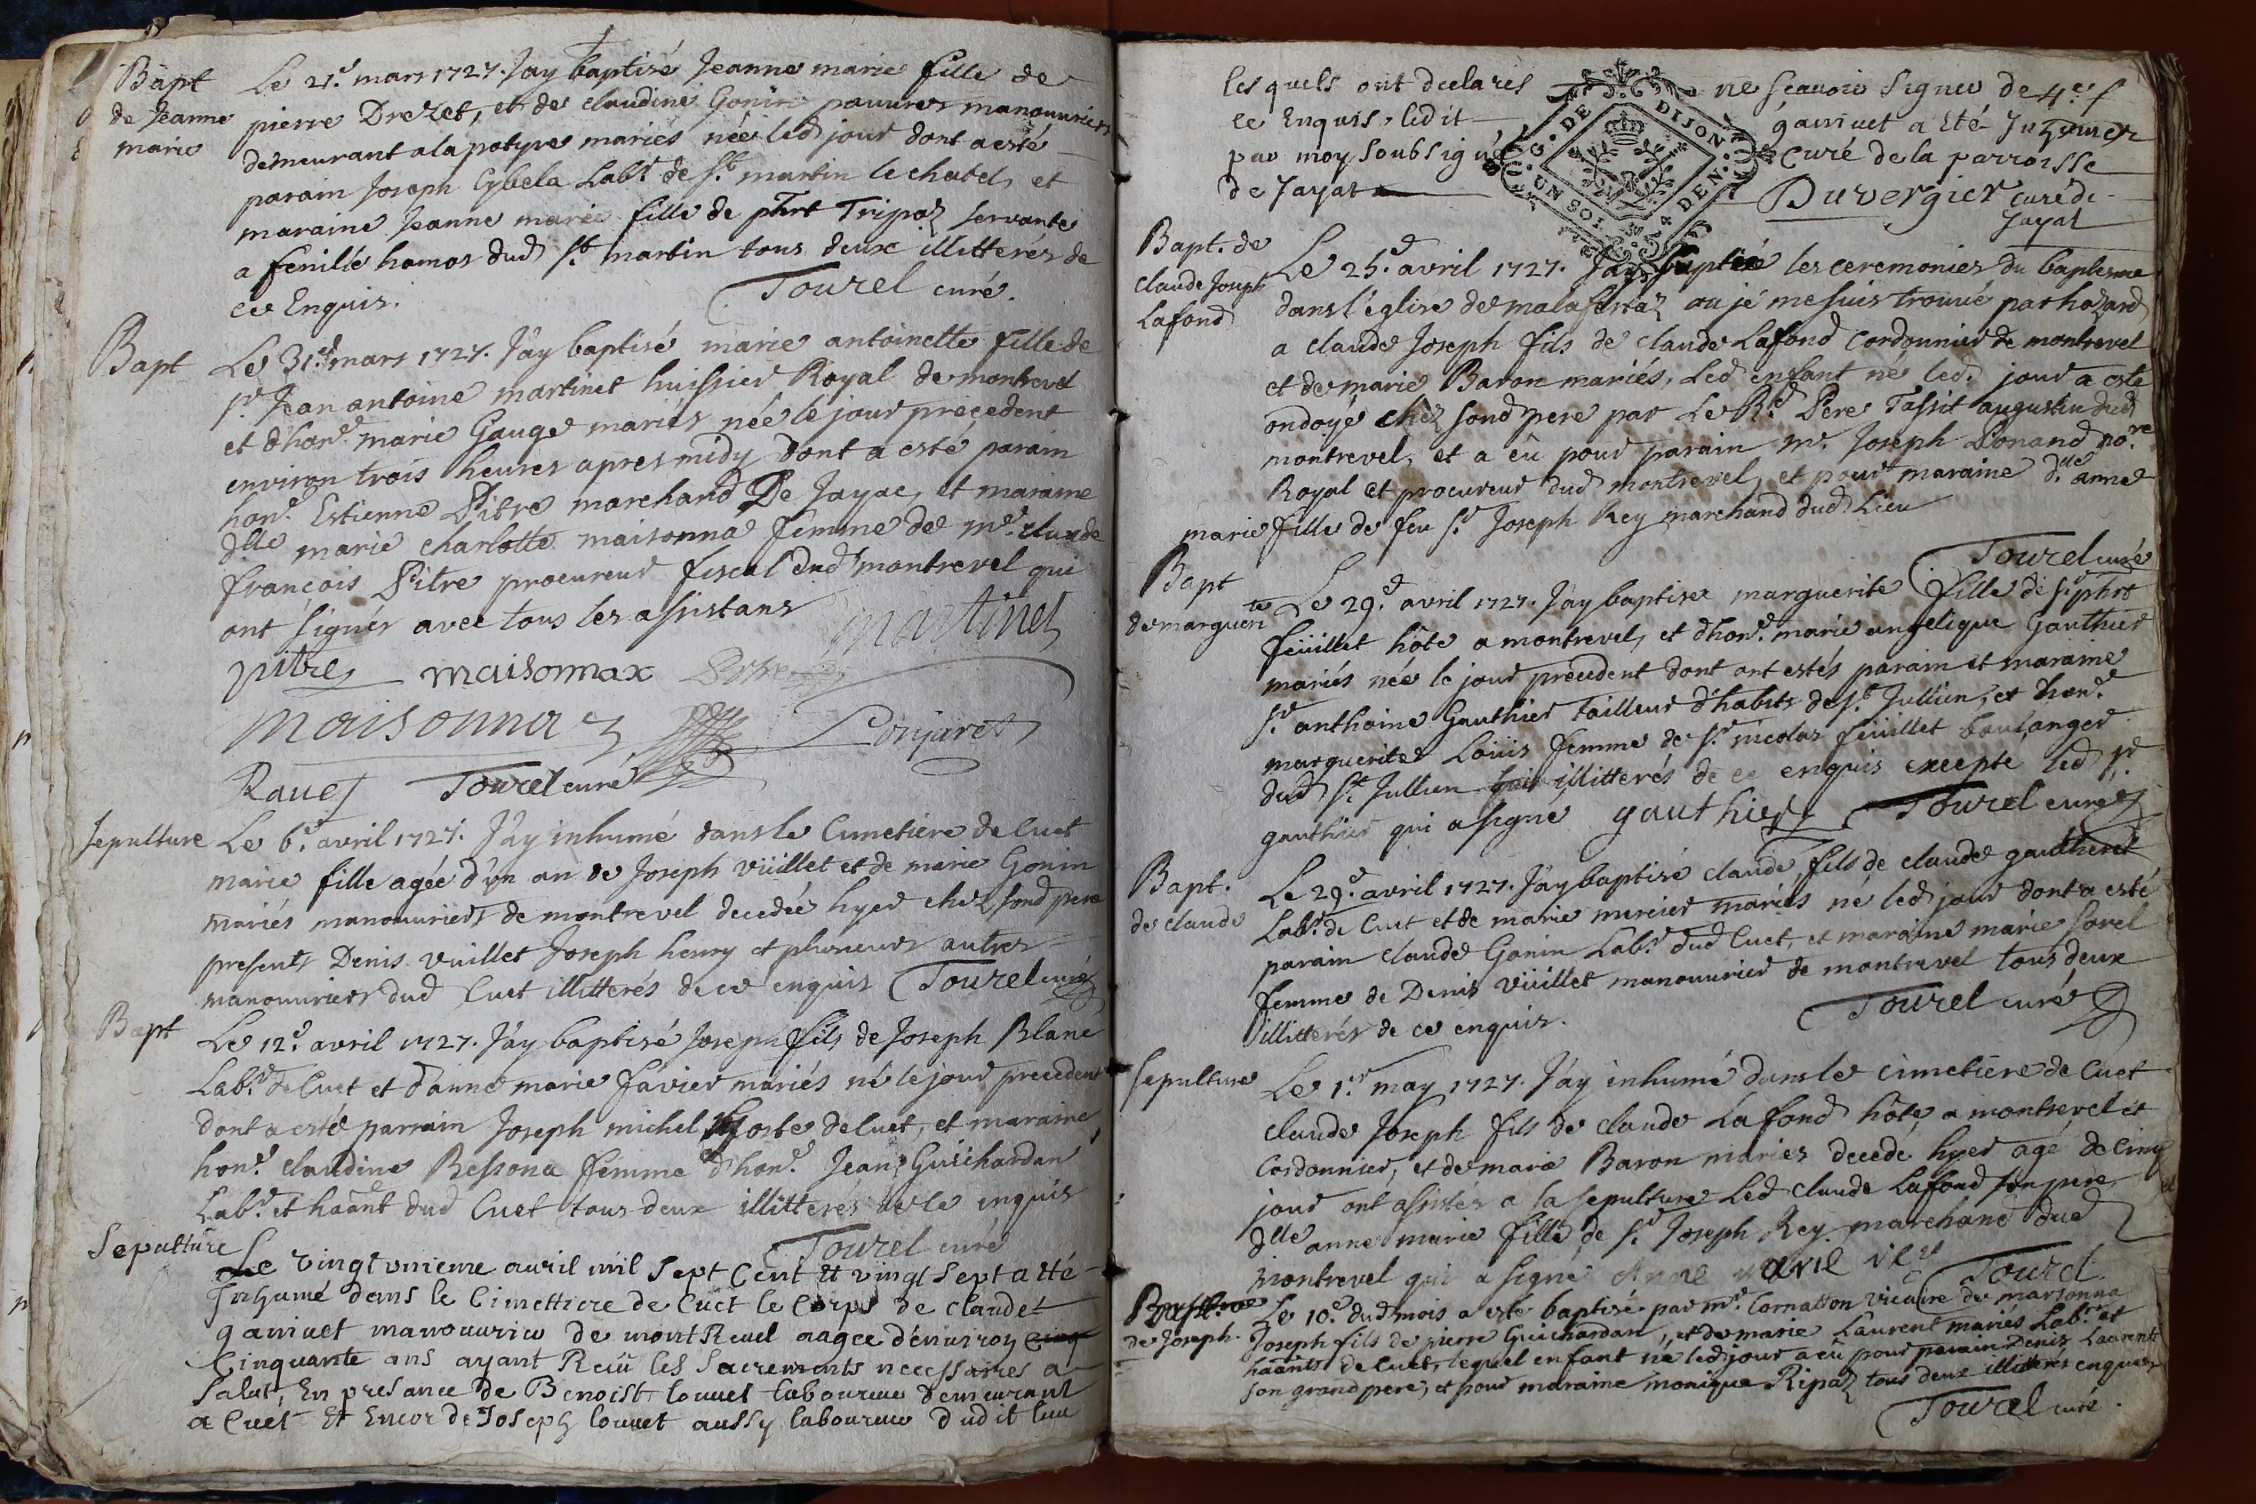 Bapt
de Jeanne
marie
Le 21.e mars 1727. J'ay baptisé Jeanne marie fille de
pierre Drezet, et de claudine Gonin pauures manouuriers
demeurant a la potyre mariés née led jour dont a esté
parain Joseph Labr. de st. martin le chatel, et
maraine Jeanne marie fille de phrt Tripoz servante
a fenilié hamos dud st. martin tous deux illitterés de
ce Enquis.
Tourel curé.
Bapt
Le 31.e mars 1727. J'ay baptisé marie antoinette fille de
sr. Jean antoine martinet huissier Royal de montrevel
et d'hone. marie Gauge mariés née le jour precedent
environ trois heures apres midy dont a esté parain
hon. Estienne Pitre marchand De Jayac, et maraine
dlle marie charlotte maisonna femme de me. claude
françois Pitre procureur fiscal dud montrevel qui
ont signés avec tous les assistans
martinet
pitre maisonnax
maisonnaz
Tourel curé
Sepulture
Le 6.e avril 1727. J'ay inhumé dans le Cimetiere de Cuet
marie fille agée d'un an de Joseph vüillet et de marie Gonin
mariés manouuriers de montrevel decedée hyer chez sond pere
presents Denis vuillet Joseph henry et plusieurs autres
manouuriers dud Cuet illitterés de ce enquis Tourel curé
Bapt
Le 12.e avril 1727. J'ay baptisé Joseph fils de Joseph Blanc
Labr. de Cuet et d'anne marie favier mariés né le jour precedent
dont a esté parrain Joseph michel de Cuet, et maraine
hone. claudine Bessona femme d'hone. Jean Guichardan
Labr. et haânt dud Cuet tous deux illitterés de ce enquis
Tourel curé
Sepulture
Le vingt unieme auril mil sept Cent et vingt sept a eté
Inhumé dans le Cimettiere de Cuet le Corps de claude
ganiuet manouuriu de mont Reuel aagee d'enuiron cinq
Cinquante ans ayant Reçü les Sacrements necessaires a
Salut, En presance de Benoist louuet laboureur demeurant
a Cuet Et Encor de Joseph louuet aussy laboureur dudit lieu
lesquels ont declares ne sçauoir signer de
ce Enquis, ledit ganiuet a Eté Inhumer
par moy soubsigné Curé de la parroisse
de Jayat
G. DE DIJON
UN SOL 4 DEN.
Duvergier curé de
Jayat
Bapt. de
claude Joseph
Lafond
Le 25.e avril 1727. J'ay supplée les ceremonies du baptesme
dans l'église de malafretaz ou je me suis trouué par hazard
a claude Joseph fils de claude Lafond Cordonnier de montrevel
et de marie Baron mariés, Led enfant né led. jour a esté
ondoyé chez sond pere par Le Rd. Pere Tassit augustin dud
montrevel, et a eû pour parain mr. Joseph Ponand nore
Royal et procureur dud montrevel, et pour maraine dlle anne
marie fille de feu sr. Joseph Rey marchand dud Lieu
Tourel curé
Bapt
de marguerite
Le 29.e avril 1727. J'ay baptisee marguerite fille de sr. phrt
feüillet hôte a montrevel, et d'hone. marie angelique Gauthier
mariés née le jour precedent dont ont estés parain et maraine
sr. anthoine Gauthier tailleur d'habits de st. Jullien, et hone.
marguerite Loüis femme de sr. nicolas feüillet boulanger
dud st. Jullien illitterés de ce enquis excepté led sr.
gauthier qui a signé gauthier Tourel curé
Bapt.
de claude
Le 29.e avril 1727. J'ay baptisé claude, fils de claude gautheret
Labr. de Cuet et de marie mercier mariés né led jour dont a esté
parain claude Gonin Labr. dud Cuet, et maraine marie Sorel
femme de Denis vüillet manouurier de montrevel tous deux
illitterés de ce enquis.
Tourel curé
Sepulture
Le 1.er may 1727. J'ay inhumé dans le cimetiere de Cuet
claude Joseph fils de claude Lafond hôte a montrevel et
Cordonnier, et de marie Baron mariés decedé hyer agé de Cinq
jour ont assistés a sa sepulture Led claude Lafond son pere
dlle anne marie fille de sr. Joseph Rey marchand dud
montrevel qui a signé Anne marie
Tourel
Bapteme
de Joseph.
Le 10.e dud mois a esté baptisé par mr. Cornatton vicaire de marsonna
Joseph fils de pierre Guichardan, et de marie Laurent mariés Labr. et
haânts de Cuet, lequel enfant né led jour a eü pour parain Denis Laurent
son grand pere, et pour maraine monique Ripaz tous deux illitterés enquis
Tourel curé.